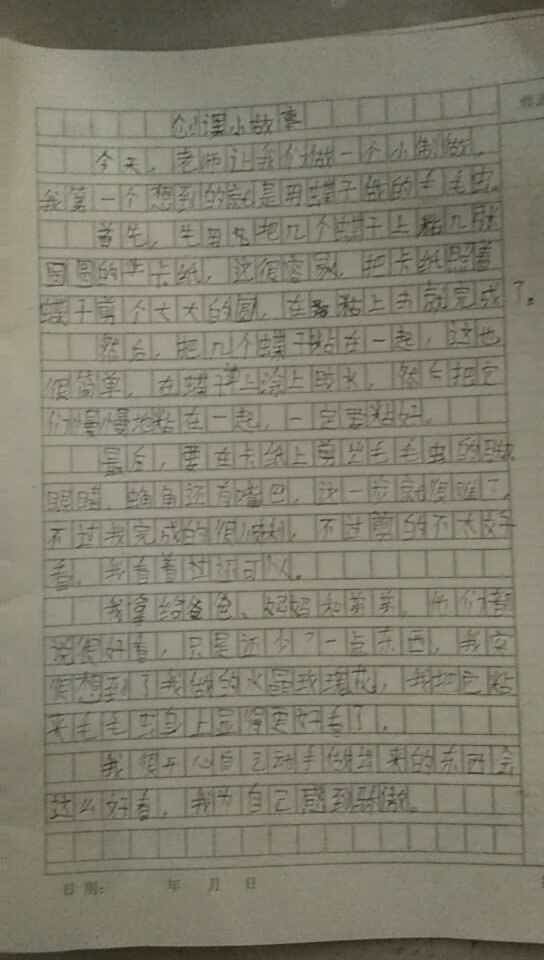 创课小故事
今天，老师让我们做一个小制做。
我第一个想到的就是用蝶子做的毛毛虫。
首先，先用把几个蝶子上粘几张
圆圆的卡纸，这很容易，把卡纸照着
蝶子剪个大大的圆，在粘上去就完成了。
然后，把几个蝶子粘在一起，这也
很简单，在蝶子上涂上胶水，然后把它
们慢慢地粘在一起，一定要粘好。
最后，要在卡纸上剪出毛毛虫的
眼睛、触角还有嘴巴，这一步就很难了，
不过我完成的很顺利，不过剪的不太好
看，我看着还可以。
我拿给爸爸、妈妈和弟弟，他们都
说很好看，只是还少了一点东西，我突
然想到了我做的水晶玫瑰花，我把它粘
来毛毛虫身上显得更好看了。
我很开心自己动手做出来的东西会
这么好看，我为自己感到骄傲。
日期： 年 月 日